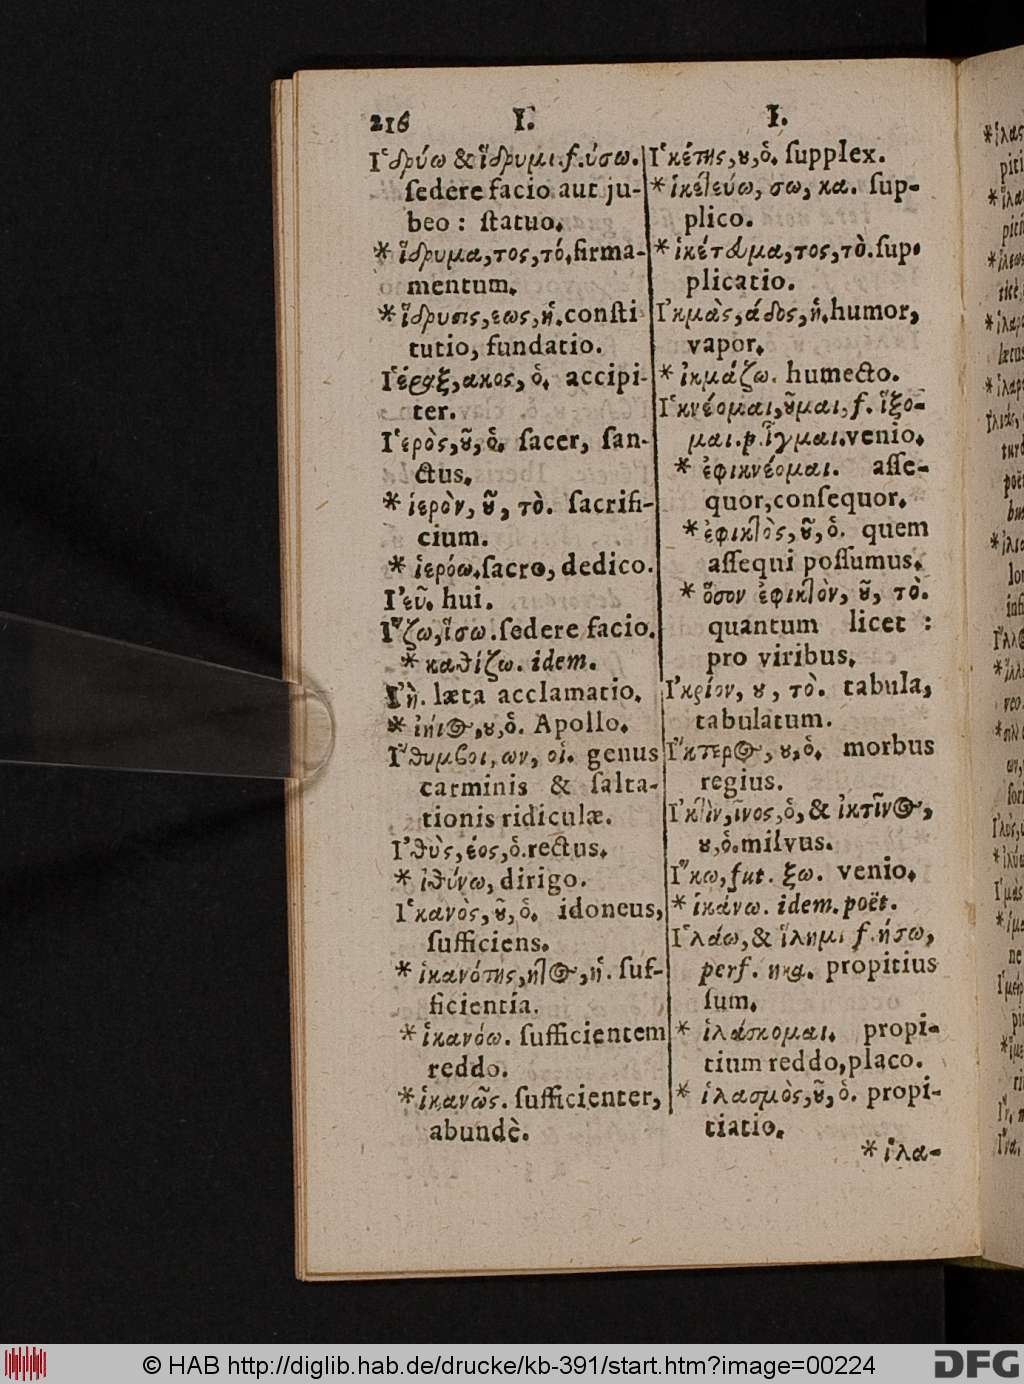 216 I. I.
Ἱδρύω & ἵδρυμι. f. ύσω.
ſedere facio aut ju-
beo: ſtatuo.
* ἵδρυμα, τος, τό. firma-
mentum.
* ἵδρυσις, εως, ἡ. conſti
tutio, fundatio.
Ἱέραξ, ακος, ὁ. accipi-
ter.
Ἱερὸς, ȣ͂, ὁ. ſacer, ſan-
ctus.
* ἱερὸν, ȣ͂, τὸ. ſacrifi-
cium.
* ἱερόω. ſacro, dedico.
Ἰεῦ. hui.
Ἵζω, ἵσω. ſedere facio.
* καθίζω. idem.
Ἰή. læta acclamatio.
* ἰήιος, ȣ, ὁ. Apollo.
Ἴθυμβοι, ων, οἱ. genus
carminis & ſalta-
tionis ridiculæ.
Ἰθὺς, έος, ὁ. rectus.
* ἰθύνω, dirigo.
Ἱκανὸς, ȣ͂, ὁ. idoneus,
ſufficiens.
* ἱκανότης, ητος, ἡ. ſuf-
ficientia.
* ἱκανόω. ſufficientem
reddo.
* ἱκανῶς. ſufficienter,
abundè.
Ἱκέτης, ȣ, ὁ. ſupplex.
* ἱκετεύω, σω, κα. ſup-
plico.
* ἱκέτευμα, τος, τὸ. ſup-
plicatio.
Ἰκμὰς, άδος, ἡ. humor,
vapor.
* ἰκμάζω. humecto.
Ἱκνέομαι, ȣ͂μαι, f. ἵξο-
μαι. p. ἷγμαι. venio.
* ἐφικνέομαι. aſſe-
quor, conſequor.
* ἐφικτὸς, ȣ͂, ὁ. quem
aſſequi poſſumus.
* ὅσον ἐφικτὸν, ȣ͂, τὸ.
quantum licet:
pro viribus.
Ἰκρίον, ȣ, τὸ. tabula,
tabulatum.
Ἴκτερος, ȣ, ὁ. morbus
regius.
Ἰκτὶν, ῖνος, ὁ, & ἰκτῖνος,
ȣ, ὁ. milvus.
Ἵκω, fut. ξω. venio.
* ἱκάνω. idem. poët.
Ἱλάω, & ἵλημι f. ήσω,
perf. ηκα. propitius
ſum.
* ἱλάσκομαι. propi-
tium reddo, placo.
* ἱλασμὸς, ȣ͂, ὁ. propi-
tiatio.
* ἱλα-
© HAB http://diglib.hab.de/drucke/kb-391/start.htm?image=00224
DFG